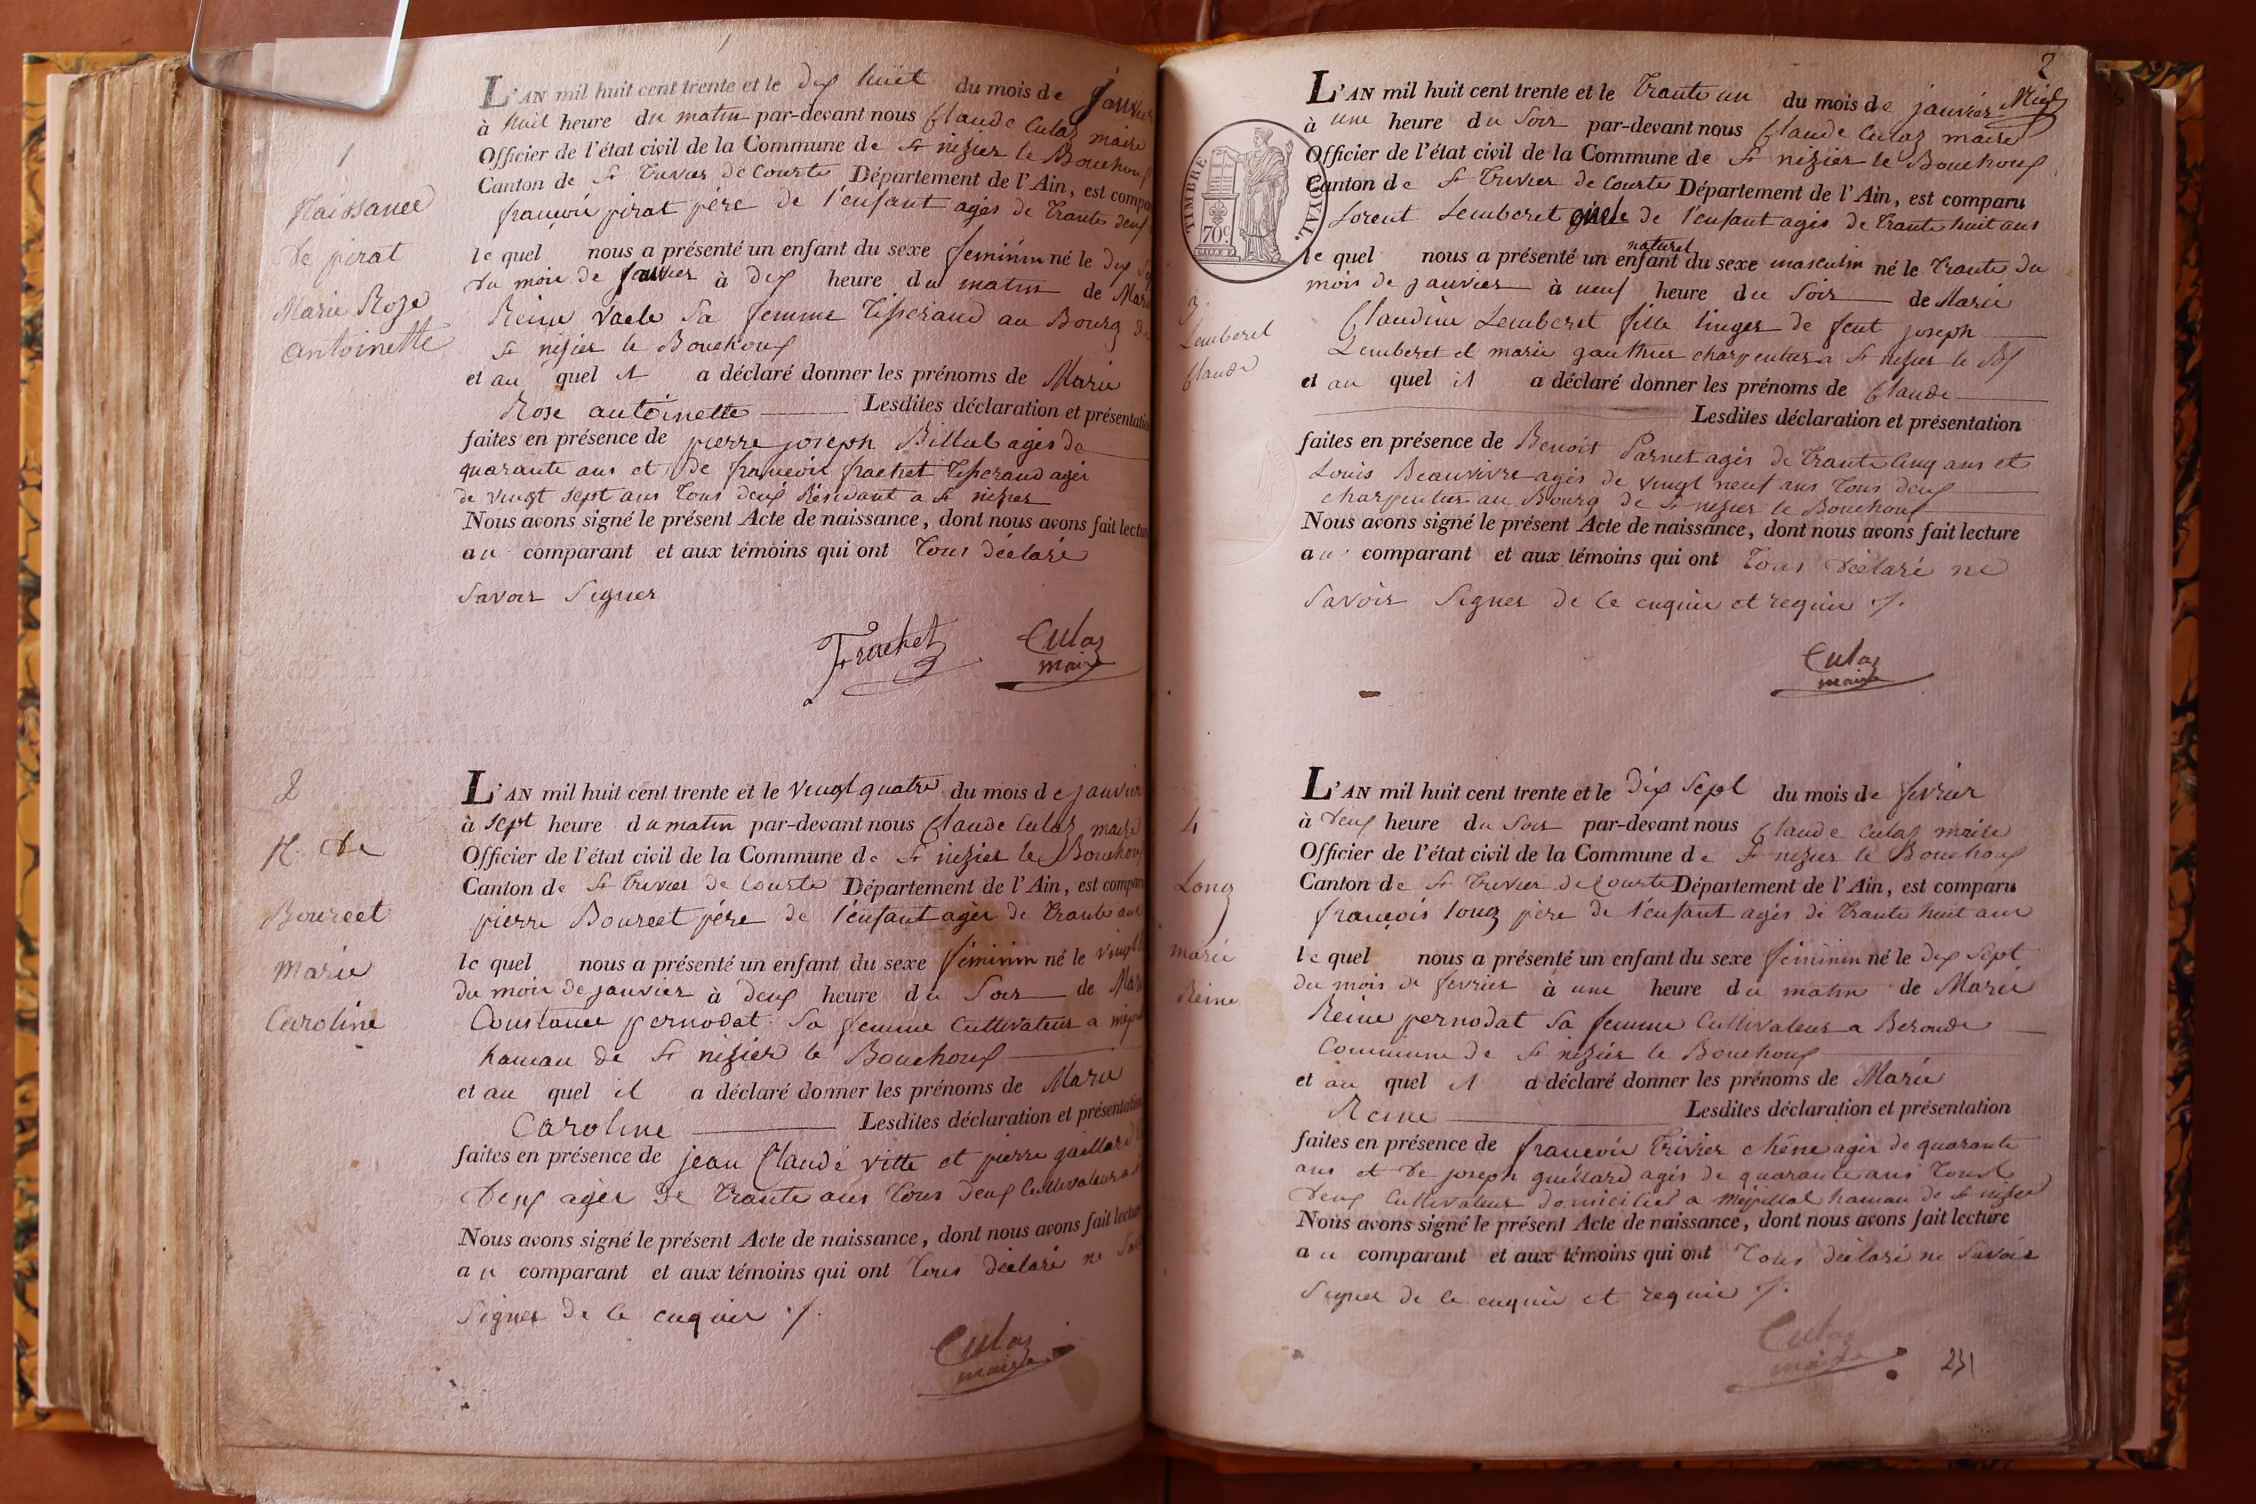 1
Naissance
de pirat
Marie Roze
antoinette
L'AN mil huit cent trente et le dix huit du mois de Janvier
à huit heure du matin par-devant nous Claude Culaz maire
Officier de l'état civil de la Commune de St nizier le Bouchoux
Canton de St Trivier de Courte Département de l'Ain, est compa
françois pirat père de l'enfant agés de trante deux
le quel nous a présenté un enfant du sexe feminin né le dix
du mois de janvier à dix heure du matin de Mari
Reine sa femme Tisserand au Bourg de
St nizier le Bouchoux
et au quel il a déclaré donner les prénoms de Marie
Rose antoinette Lesdites déclaration et présentatio
faites en présence de pierre joseph agés de
quarante ans et de francois frachet Tisserand agés
de vingt sept ans tous deux Résidant a St nizier
Nous avons signé le présent Acte de naissance, dont nous avons fait lectur
au comparant et aux témoins qui ont Tous déclaré
Savoir Signer
Frachet Culaz
maire
2
N. de
Bourcet
Marie
Caroline
L'AN mil huit cent trente et le vingt quatre du mois de janvier
à sept heure du matin par-devant nous Claude Culaz maire
Officier de l'état civil de la Commune de St nizier le Bouchoux
Canton de St Trivier de Courte Département de l'Ain, est compar
pierre Bourcet père de l'enfant agés de trante ans
le quel nous a présenté un enfant du sexe féminin né le vingt
du mois de janvier à deux heure du Soir de Mari
Constance pernodat Sa femme Cultivateur a
hameau de St nizier le Bouchoux
et au quel il a déclaré donner les prénoms de Marie
Caroline Lesdites déclaration et présentation
faites en présence de jean Claude vitte et pierre gaillard
deux agés de trante ans tous deux Cultivateur a
Nous avons signé le présent Acte de naissance, dont nous avons fait lectur
au comparant et aux témoins qui ont Tous déclaré ne Sav
Signer de ce enquis
Culaz
maire
2
TIMBRE ROYAL.
70c
3
Lemberet
Claude
L'AN mil huit cent trente et le Trante un du mois de janvier
à une heure du Soir par-devant nous Claude Culaz maire
Officier de l'état civil de la Commune de St nizier le Bouchoux
Canton de St Trivier de Courte Département de l'Ain, est comparu
Lorent Lemberet oncle de l'enfant agés de trante huit ans
le quel nous a présenté un enfant naturel du sexe masculin né le Trante du
mois de janvier à neuf heure du Soir de Marie
Claudine Lemberet fille linger de feut joseph
Lemberet et marie gauthier charpentier a St nizier le Bx
et au quel il a déclaré donner les prénoms de Claude
Lesdites déclaration et présentation
faites en présence de Benoit Parnet agés de trante cinq ans et
Louis Beauvivre agés de vingt neuf ans tous deux
charpentier au Bourg de St nizier le Bouchoux
Nous avons signé le présent Acte de naissance, dont nous avons fait lecture
au comparant et aux témoins qui ont Tous déclaré ne
Savoir Signer de ce enquis et requis
Culaz
maire
4
Long
marie
Reine
L'AN mil huit cent trente et le dix Sept du mois de fevrier
à deux heure du Soir par-devant nous Claude Culaz maire
Officier de l'état civil de la Commune de St nizier le Bouchoux
Canton de St Trivier de Courte Département de l'Ain, est comparu
françois long père de l'enfant agés de trante huit ans
le quel nous a présenté un enfant du sexe féminin né le dix sept
du mois de fevrier à une heure du matin de Marie
Reine pernodat Sa femme Cultivateur a Beronde
Commune de St nizier le Bouchoux
et au quel il a déclaré donner les prénoms de Marie
Reine Lesdites déclaration et présentation
faites en présence de francois Trivier chêne agés de quarante
ans et de joseph guillard agés de quarante ans Tous
deux Cultivateur domicilié a hameau de St nizier
Nous avons signé le présent Acte de naissance, dont nous avons fait lecture
au comparant et aux témoins qui ont Tous déclaré ne Savoir
Signer de ce enquis et requis
Culaz
maire
231